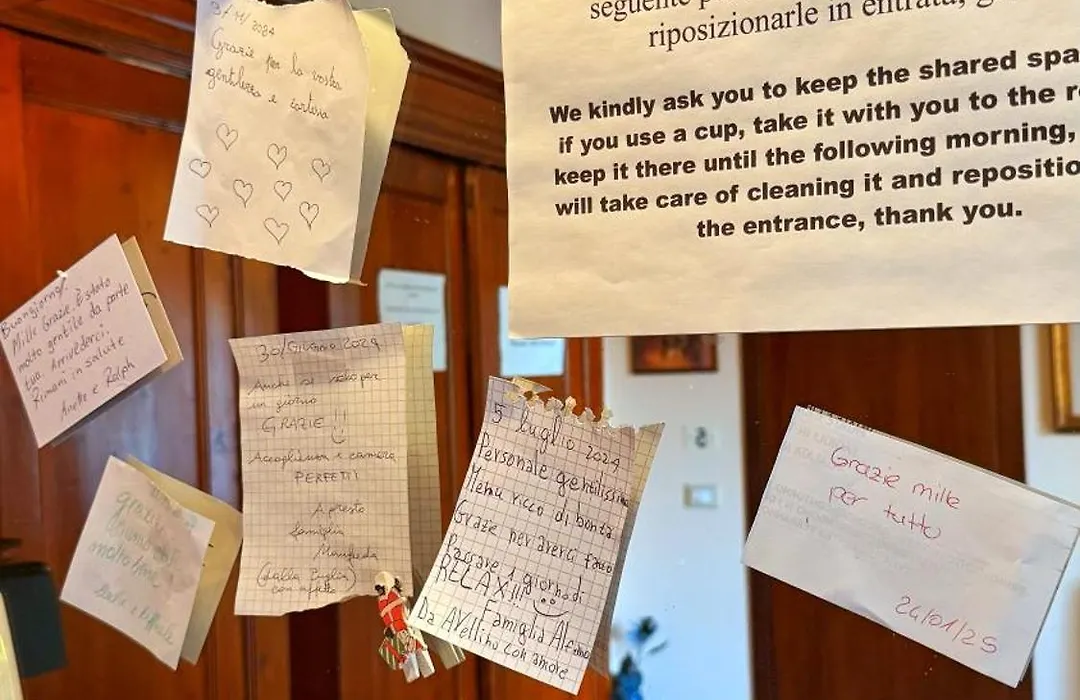 3/11/2024
Grazie per la vostra
gentilezza e cortesia
seguente
riposizionarle in entrata, g
We kindly ask you to keep the shared spa
if you use a cup, take it with you to the r
keep it there until the following morning,
will take care of cleaning it and repositio
the entrance, thank you.
Buongiorno!
Mille Grazie. È stato
molto gentile da parte
tua. Arrivederci.
Rimani in salute
Anette e Ralph
30/Giugno 2024
Anche se solo per
un giorno
GRAZIE!!!
Accoglienza e camera
PERFETTI
A presto
famiglia
Manfreda
(dalla Puglia)
con affetto
5 luglio 2024
Personale gentilissimo
Menu ricco di bontà
Grazie per averci fatto
passare 1 giorno di
RELAX!!!
Famiglia
Da Avellino con amore
grazie
molto bene
Grazie mille
per tutto
26/01/25